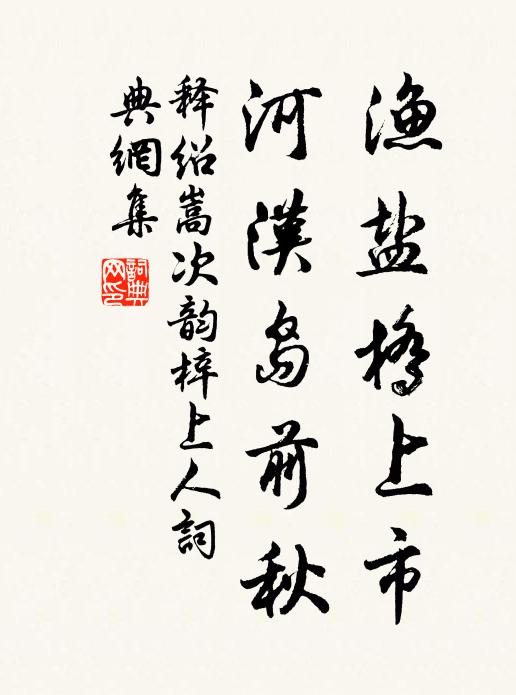 渔盐桥上市
河汉岛前秋
释绍嵩次韵梓上人詞
典網集
詞典網印